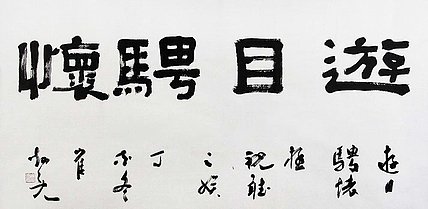 遊目騁懷
遊目
騁懷
極
視聽
之娱
丁
亥冬